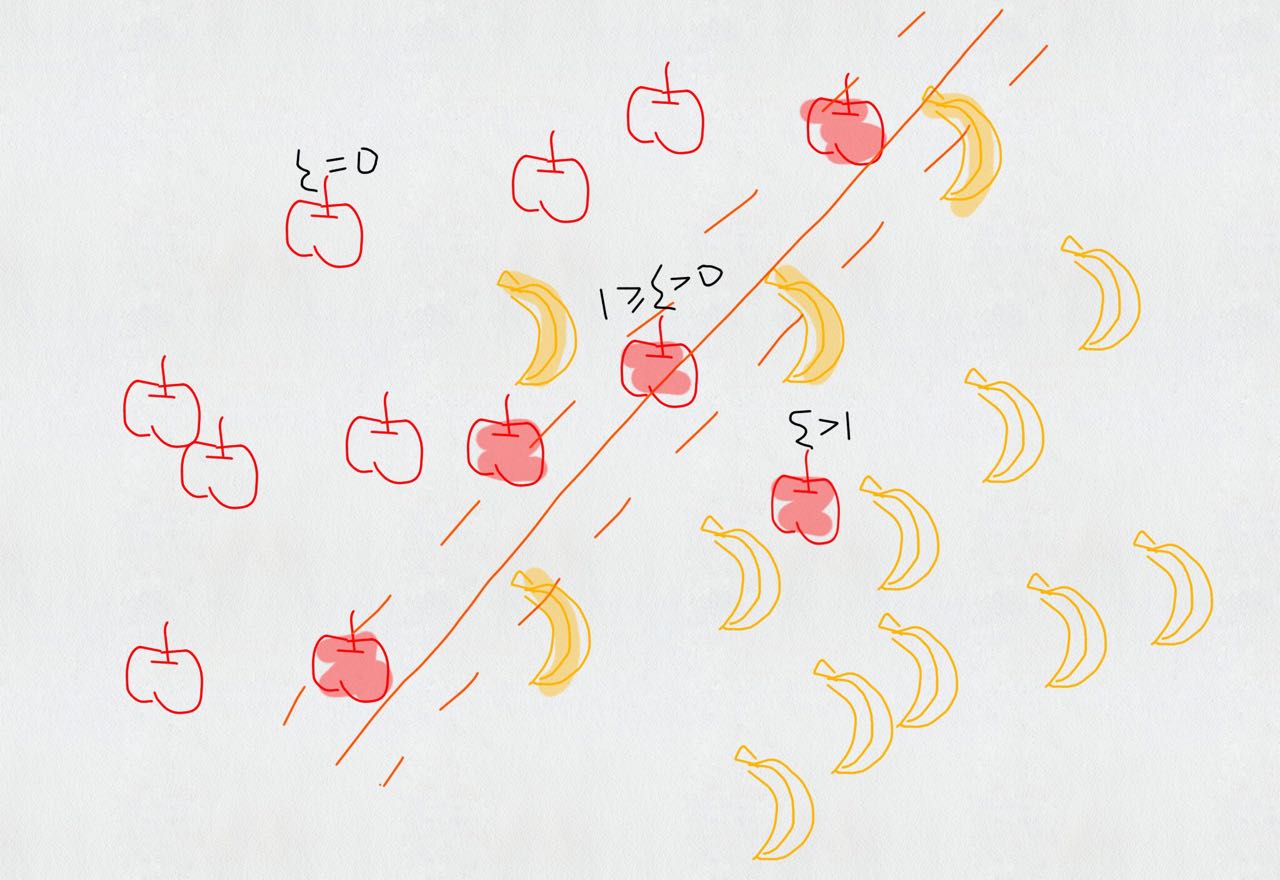 ξ=0
1⩾ξ>0
ξ>1